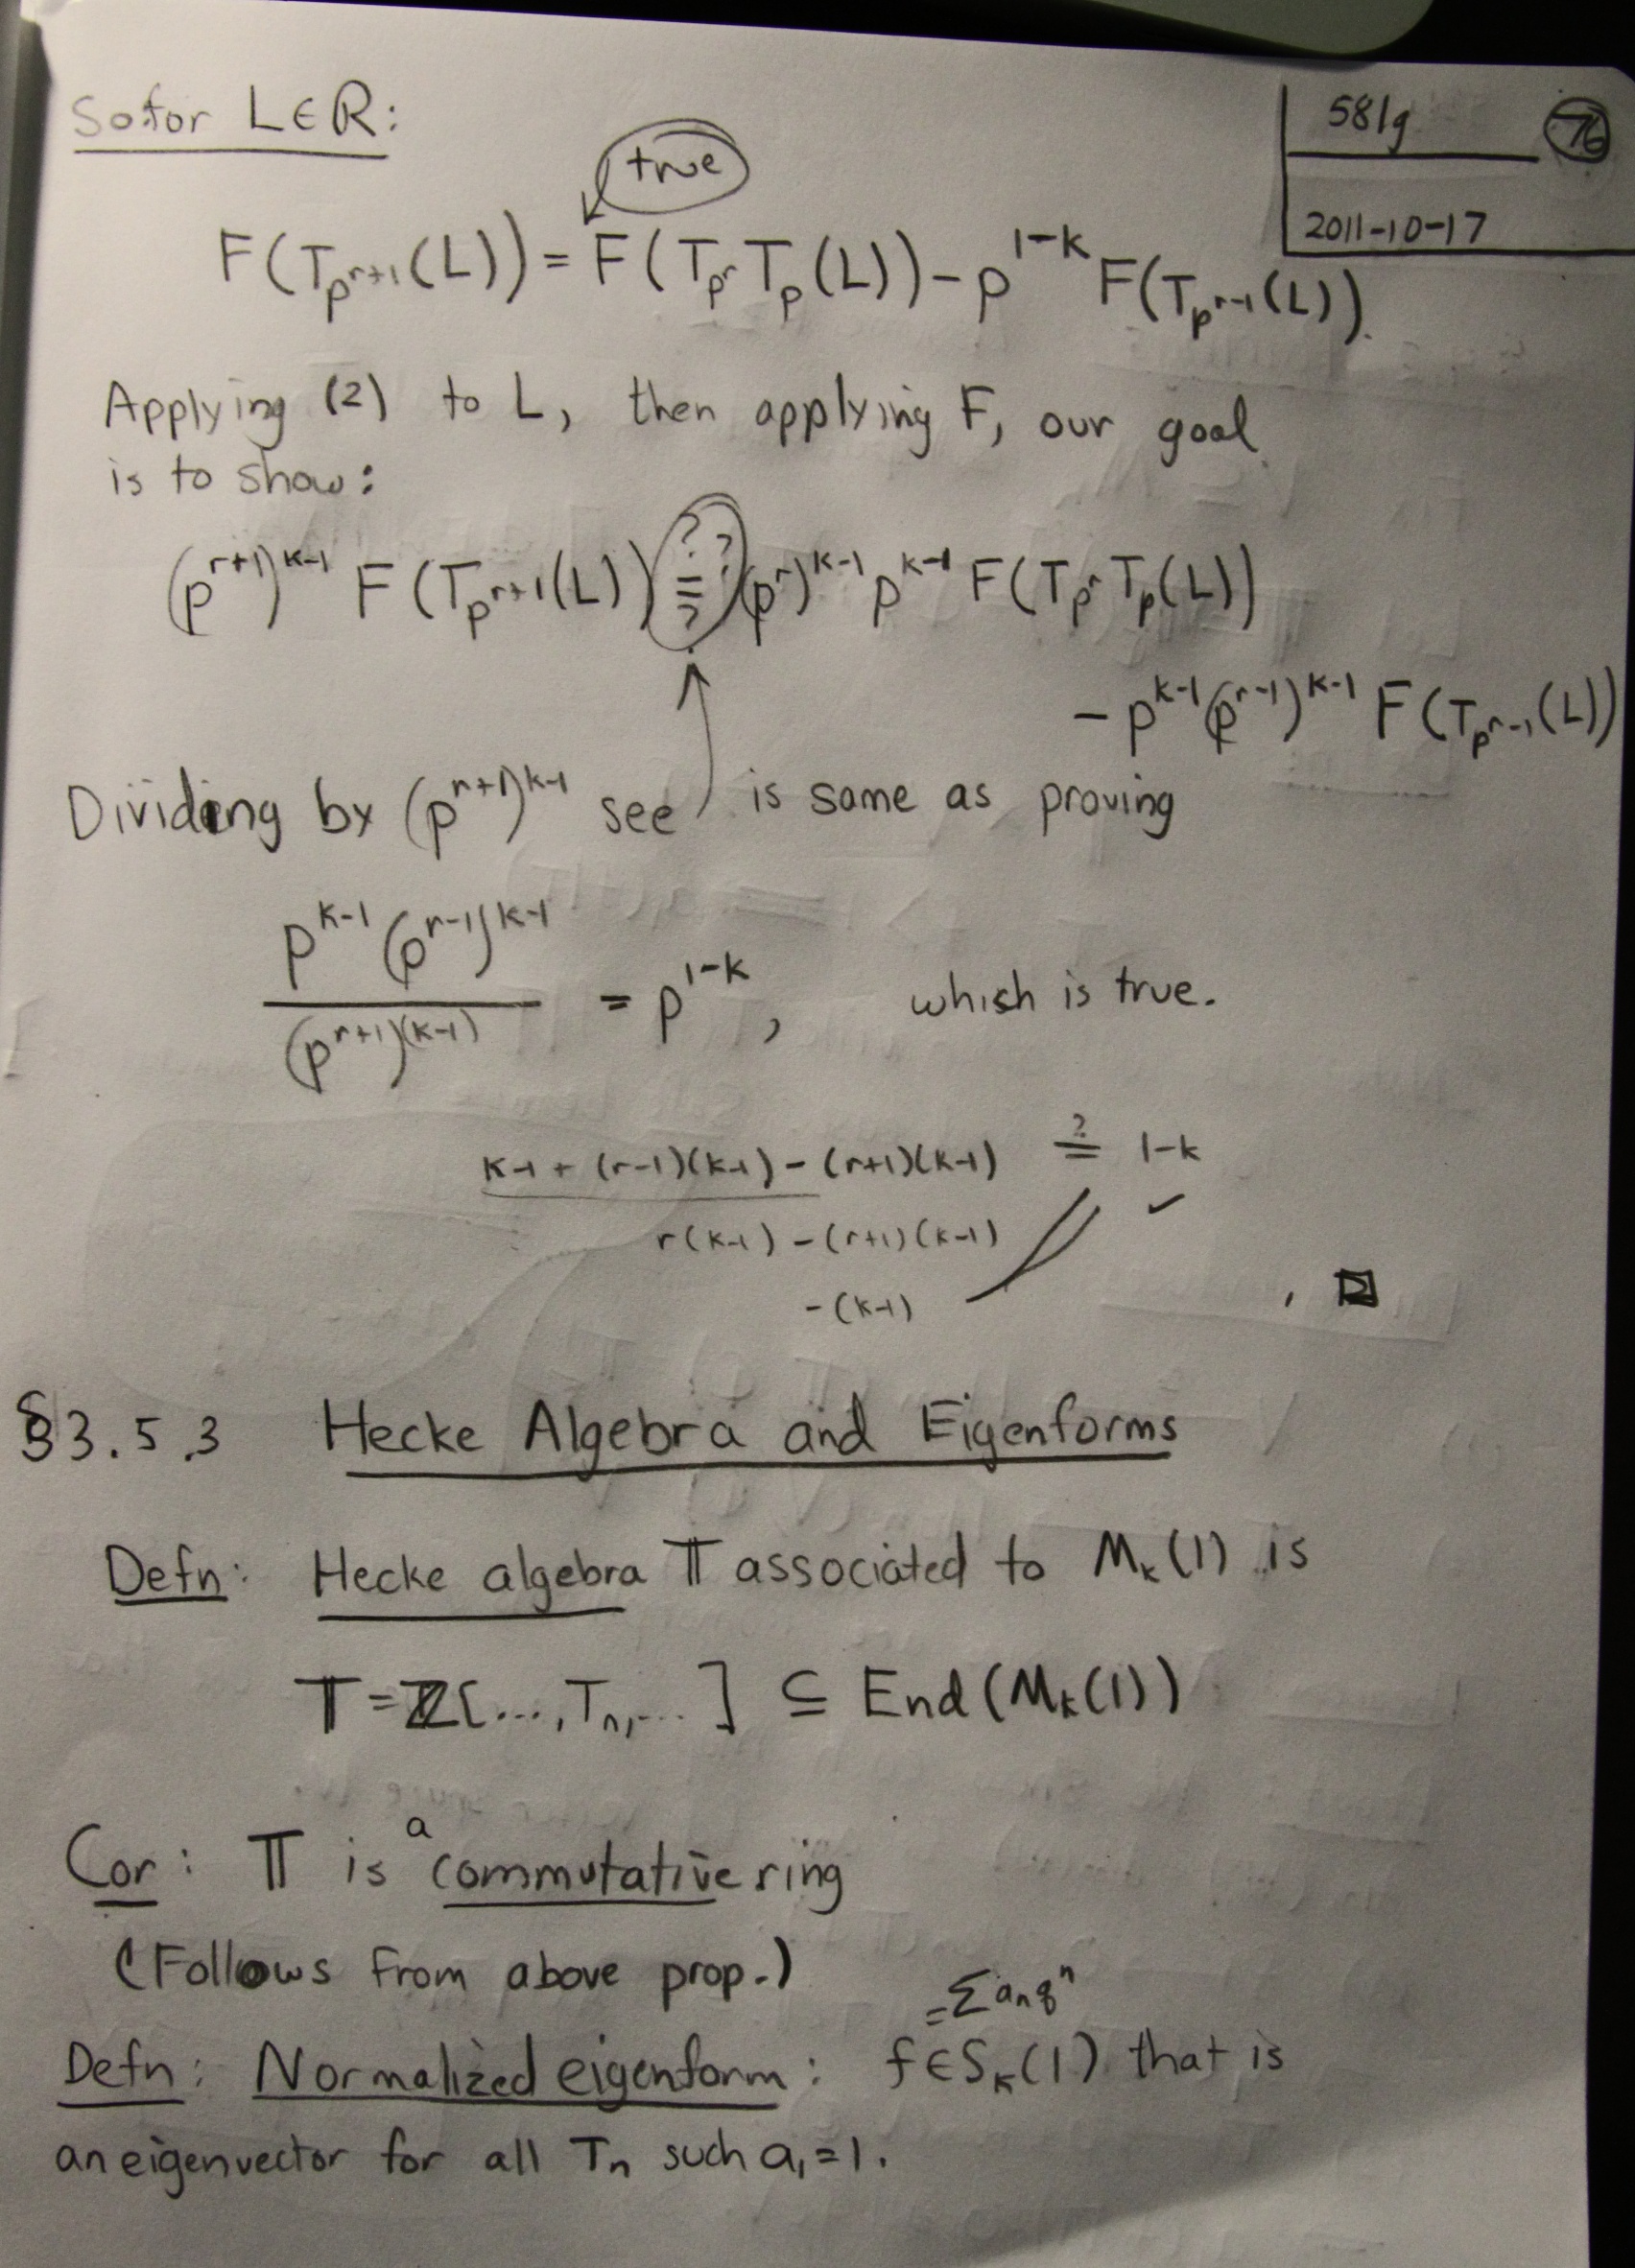 581g 76
2011-10-17
So for L ∈ R:
true
F(T_{p^{r+1}}(L)) = F(T_{p^r} T_p(L)) - p^{1-k} F(T_{p^{r-1}}(L)).
Applying (2) to L, then applying F, our goal
is to show:
(p^{r+1})^{k-1} F(T_{p^{r+1}}(L)) =??? (p^r)^{k-1} p^{k-1} F(T_{p^r} T_p(L))
- p^{k-1} (p^{r-1})^{k-1} F(T_{p^{r-1}}(L))
Dividing by (p^{r+1})^{k-1} see is same as proving
p^{k-1} (p^{r-1})^{k-1} / (p^{r+1})^{(k-1)} = p^{1-k}, which is true.
k-1 + (r-1)(k-1) - (r+1)(k-1) ≟ 1-k
r(k-1) - (r+1)(k-1) ✓
-(k-1)
, □
§3.5.3 Hecke Algebra and Eigenforms
Defn: Hecke algebra 𝕋 associated to M_k(1) is
𝕋 = ℤ[..., T_n, ...] ⊆ End(M_k(1))
Cor: 𝕋 is a commutative ring
(Follows from above prop.)
= Σ a_n q^n
Defn: Normalized eigenform: f ∈ S_k(1) that is
an eigenvector for all T_n such a_1 = 1.